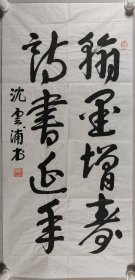 翰墨增春
诗书延年
沈雲浦书